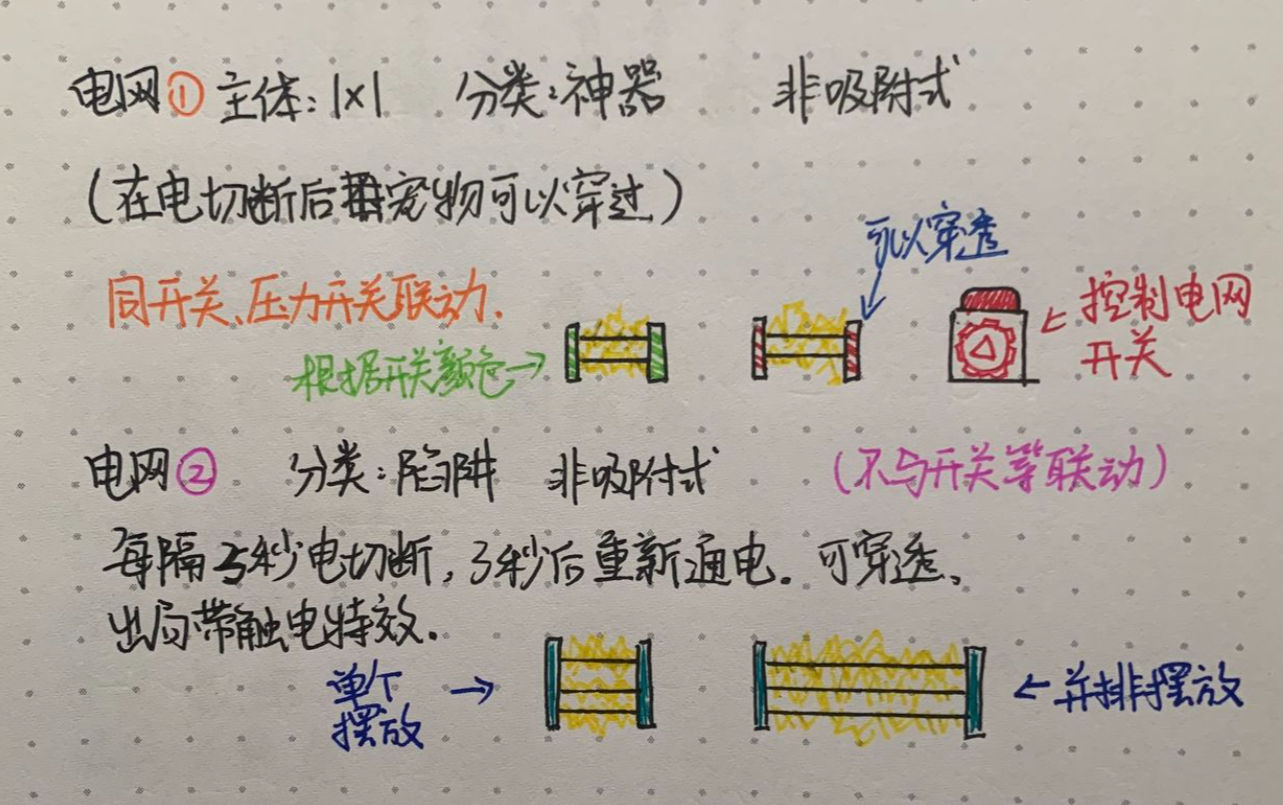 电网① 主体：1×1 分类：神器 非吸附式
（在电切断后宠物可以穿过）
可以穿透
同开关、压力开关联动.
控制电网
开关
根据开关颜色→
电网② 分类：陷阱 非吸附式 （不与开关等联动）
每隔5秒电切断，3秒后重新通电。可穿透、
出局带触电特效.
单个
摆放
→
←并排摆放